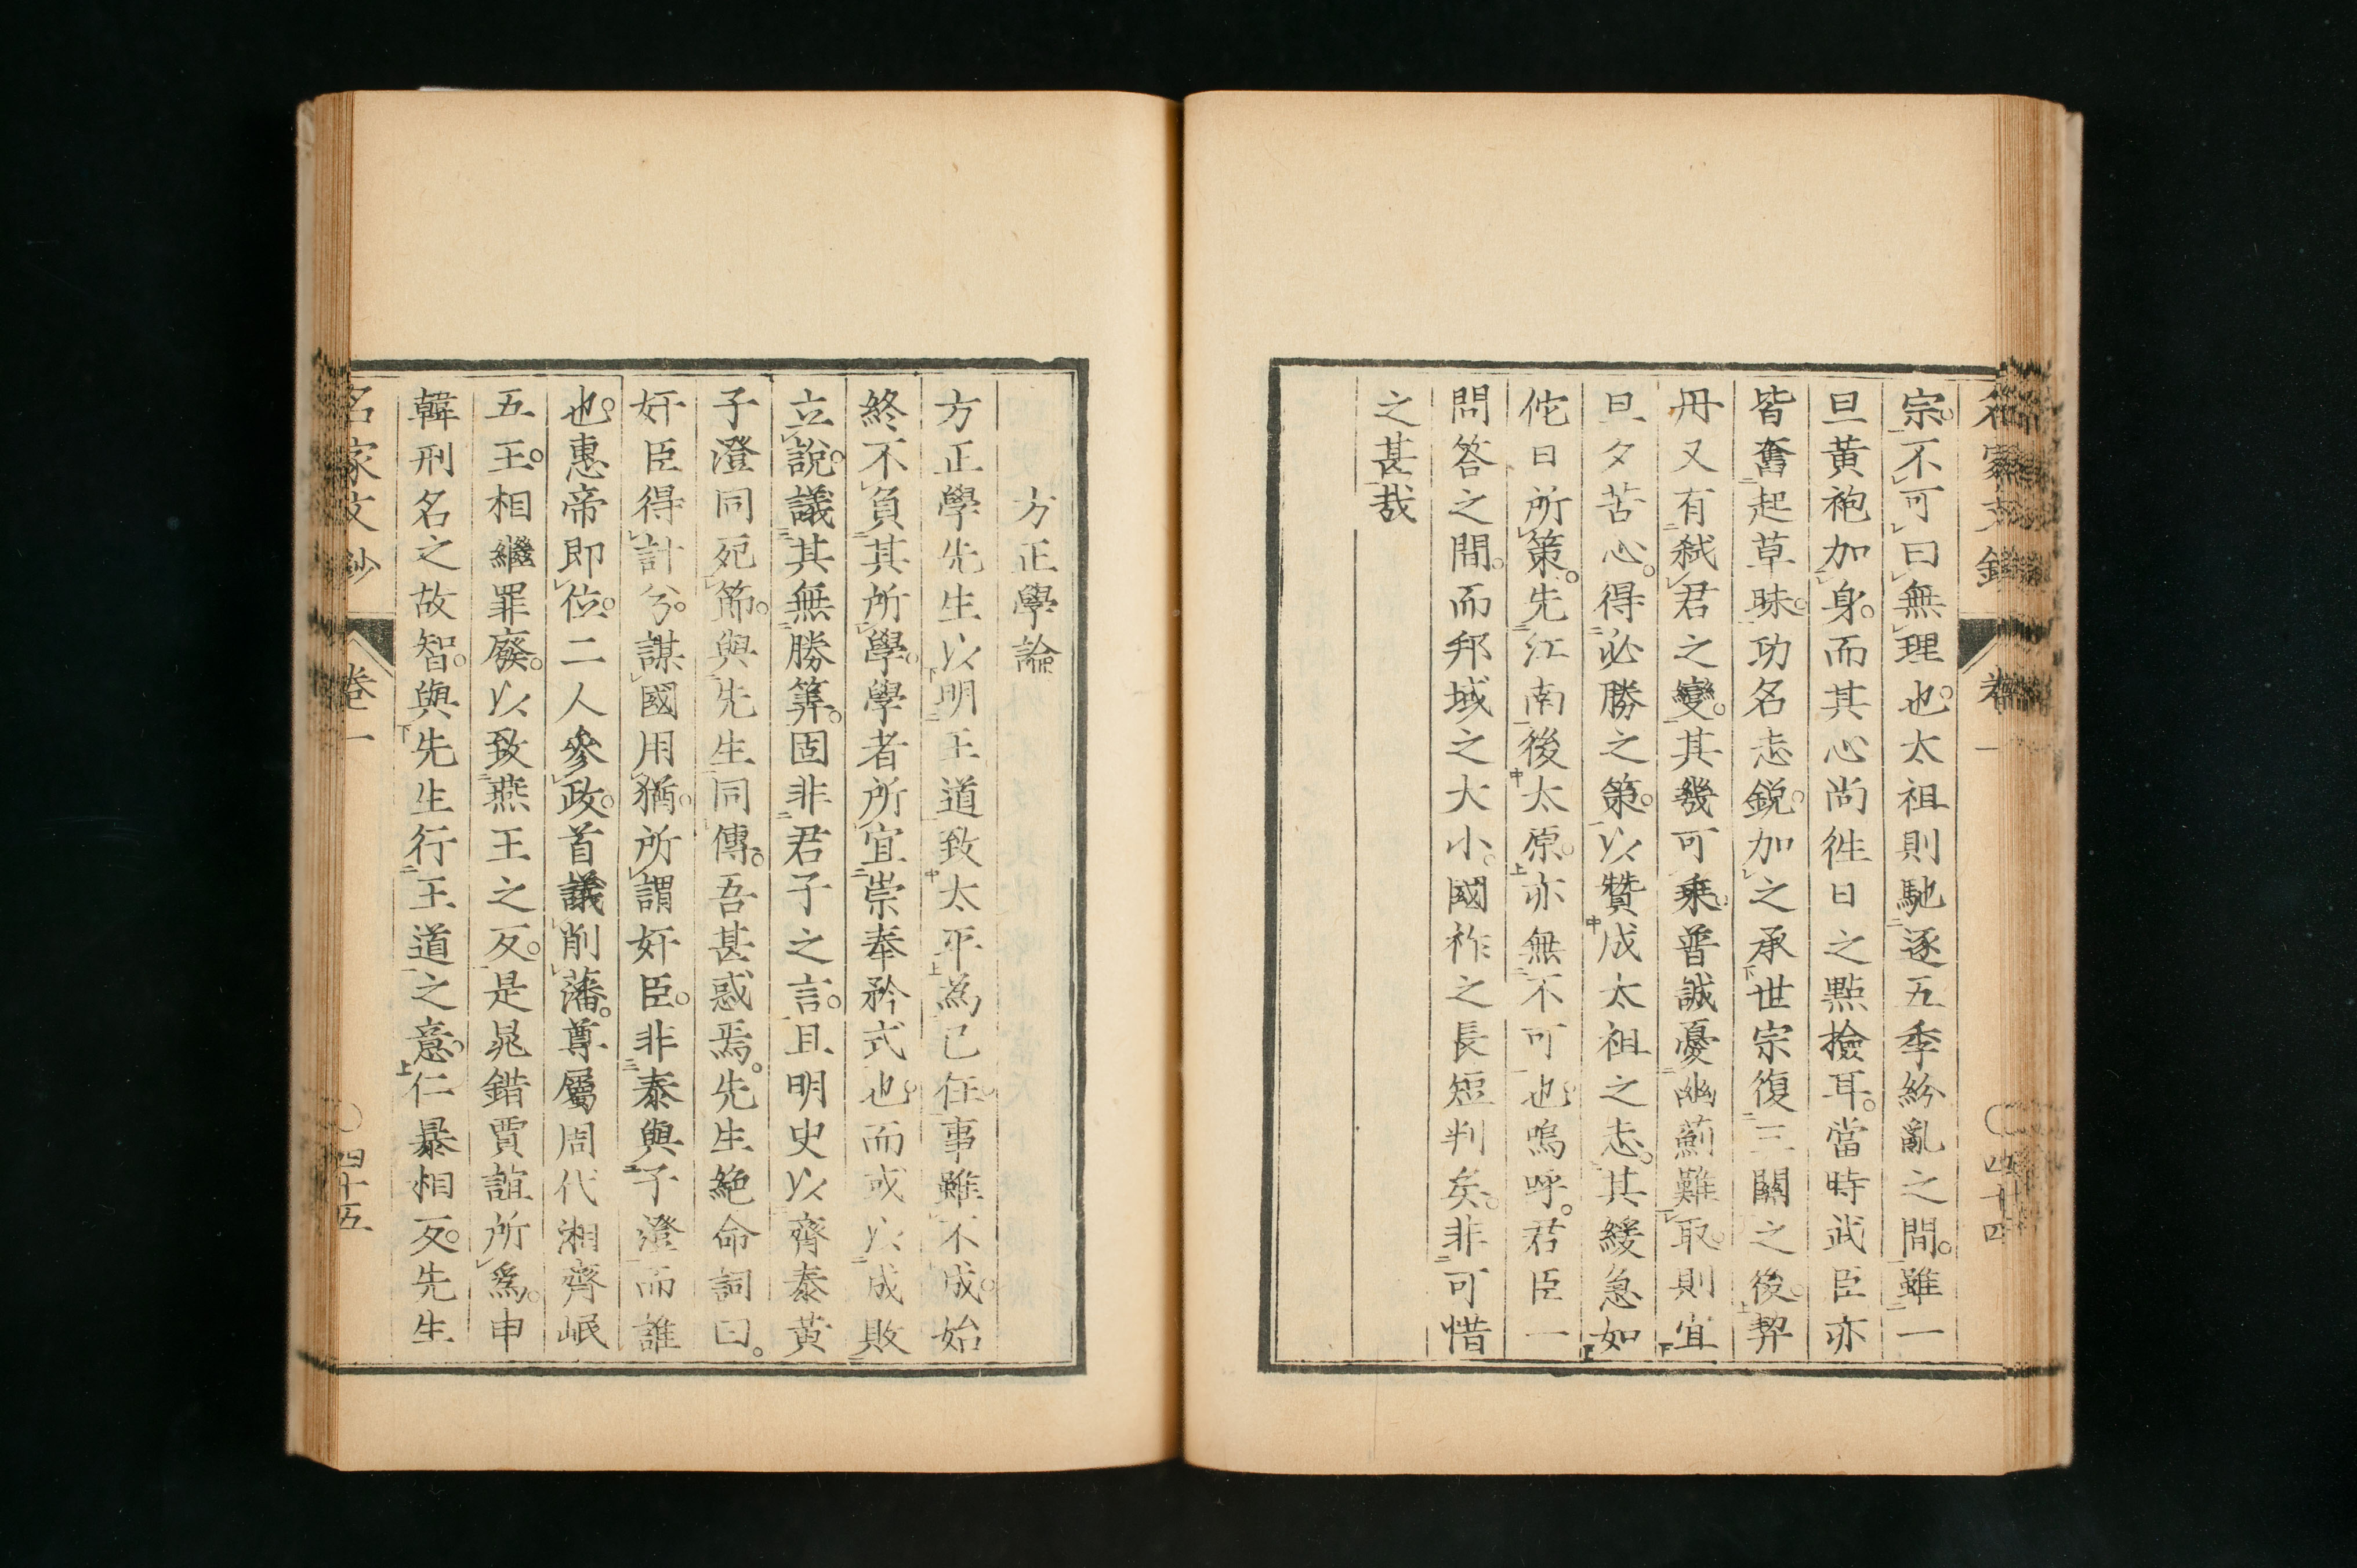 名家文鈔 卷一 四十四
宗。不可曰無理也。太祖則馳逐五季紛亂之間。雖一
旦黃袍加身。而其心尚徃日之點撿耳。當時武臣亦
皆奮起草昧。功名志銳。加之承世宗復三關之後。契
丹又有弑君之變。其幾可乗。普誠憂幽薊難取。則宜
旦夕苦心。得必勝之策。以贊成太祖之志。其緩急如
佗日所策。先江南後太原。亦無不可也。嗚呼。君臣一
問答之間。而邦域之大小。國祚之長短判矣。非可惜
之甚哉
方正學論
方正學先生以明王道致太平為己任。事雖不成。始
終不負其所學。學者所宜崇奉矜式也。而或以成敗
立說。議其無勝筭。固非君子之言。且明史以齊泰黃
子澄同死節。與先生同傳。吾甚惑焉。先生絕命詞曰。
奸臣得計兮。謀國用猶。所謂奸臣。非泰與子澄而誰
也。惠帝即位。二人參政。首議削藩。尊屬周代湘齊岷
五王。相繼罪廢。以致燕王之反。是晁錯賈誼所為。申
韓刑名之故智。與先生行王道之意。仁暴相反。先生
名家文鈔 卷一 四十五